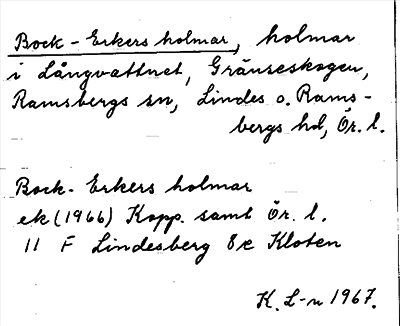 Bock-Erkers holmar, holmar
i Långvattnet, Gränsskogen,
Ramsbergs sn, Lindes o. Rams-
bergs hd, Ör. l.
Bock-Erkers holmar
ek (1966) Kopp. samt Ör. l.
11 F Lindesberg 8e Kloten
K. L-n 1967.